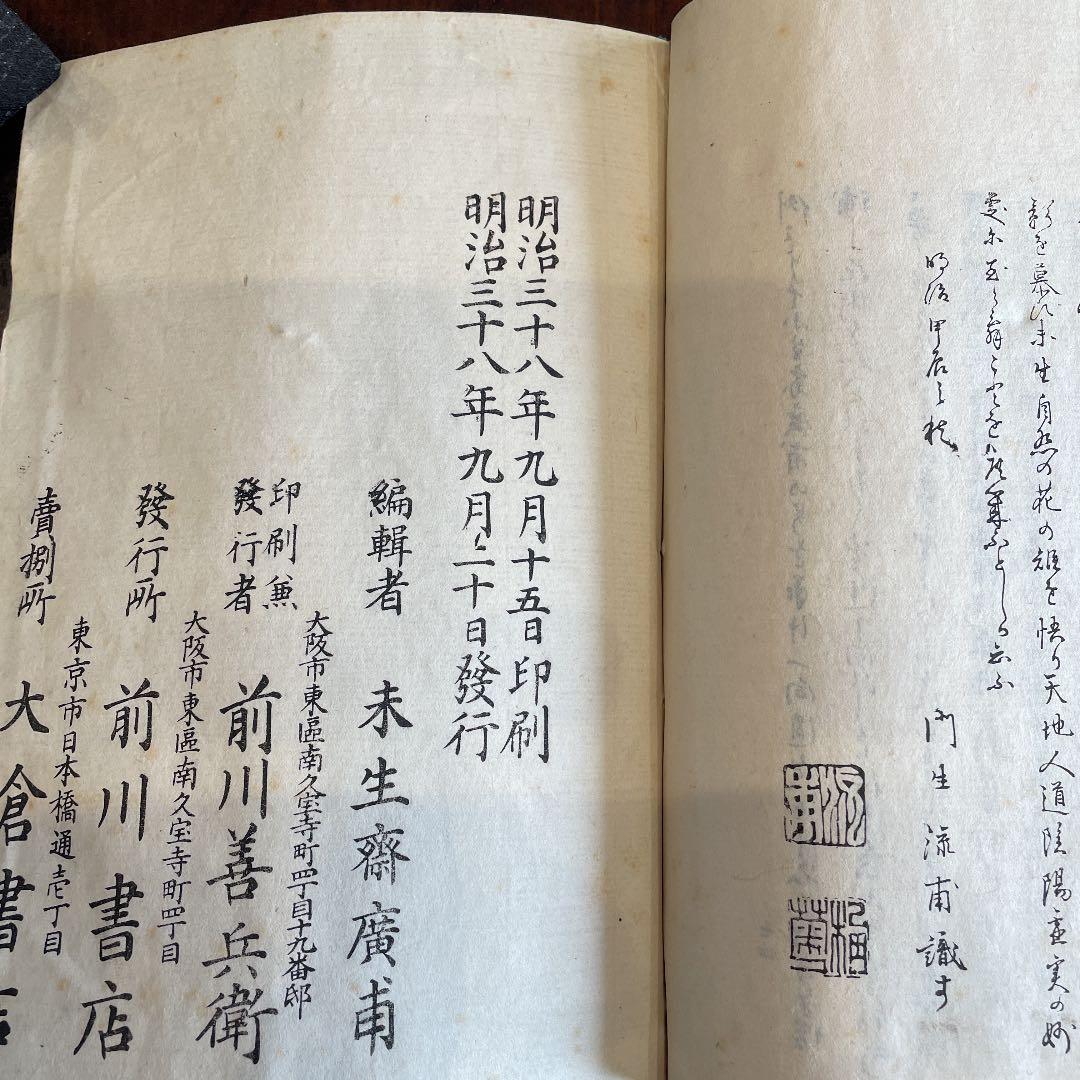 影を慕ひ未生自然の花の姿を悟り天地人道陰陽虚実の妙
明治甲辰之秋
門生流甫識す
明治三十八年九月十五日印刷
明治三十八年九月二十日發行
編輯者 未生齋廣甫
大阪市東區南久宝寺町四丁目十九番邸
印刷兼發行者 前川善兵衛
大阪市東區南久宝寺町四丁目
發行所 前川書店
東京市日本橋通壱丁目
賣捌所 大倉書店